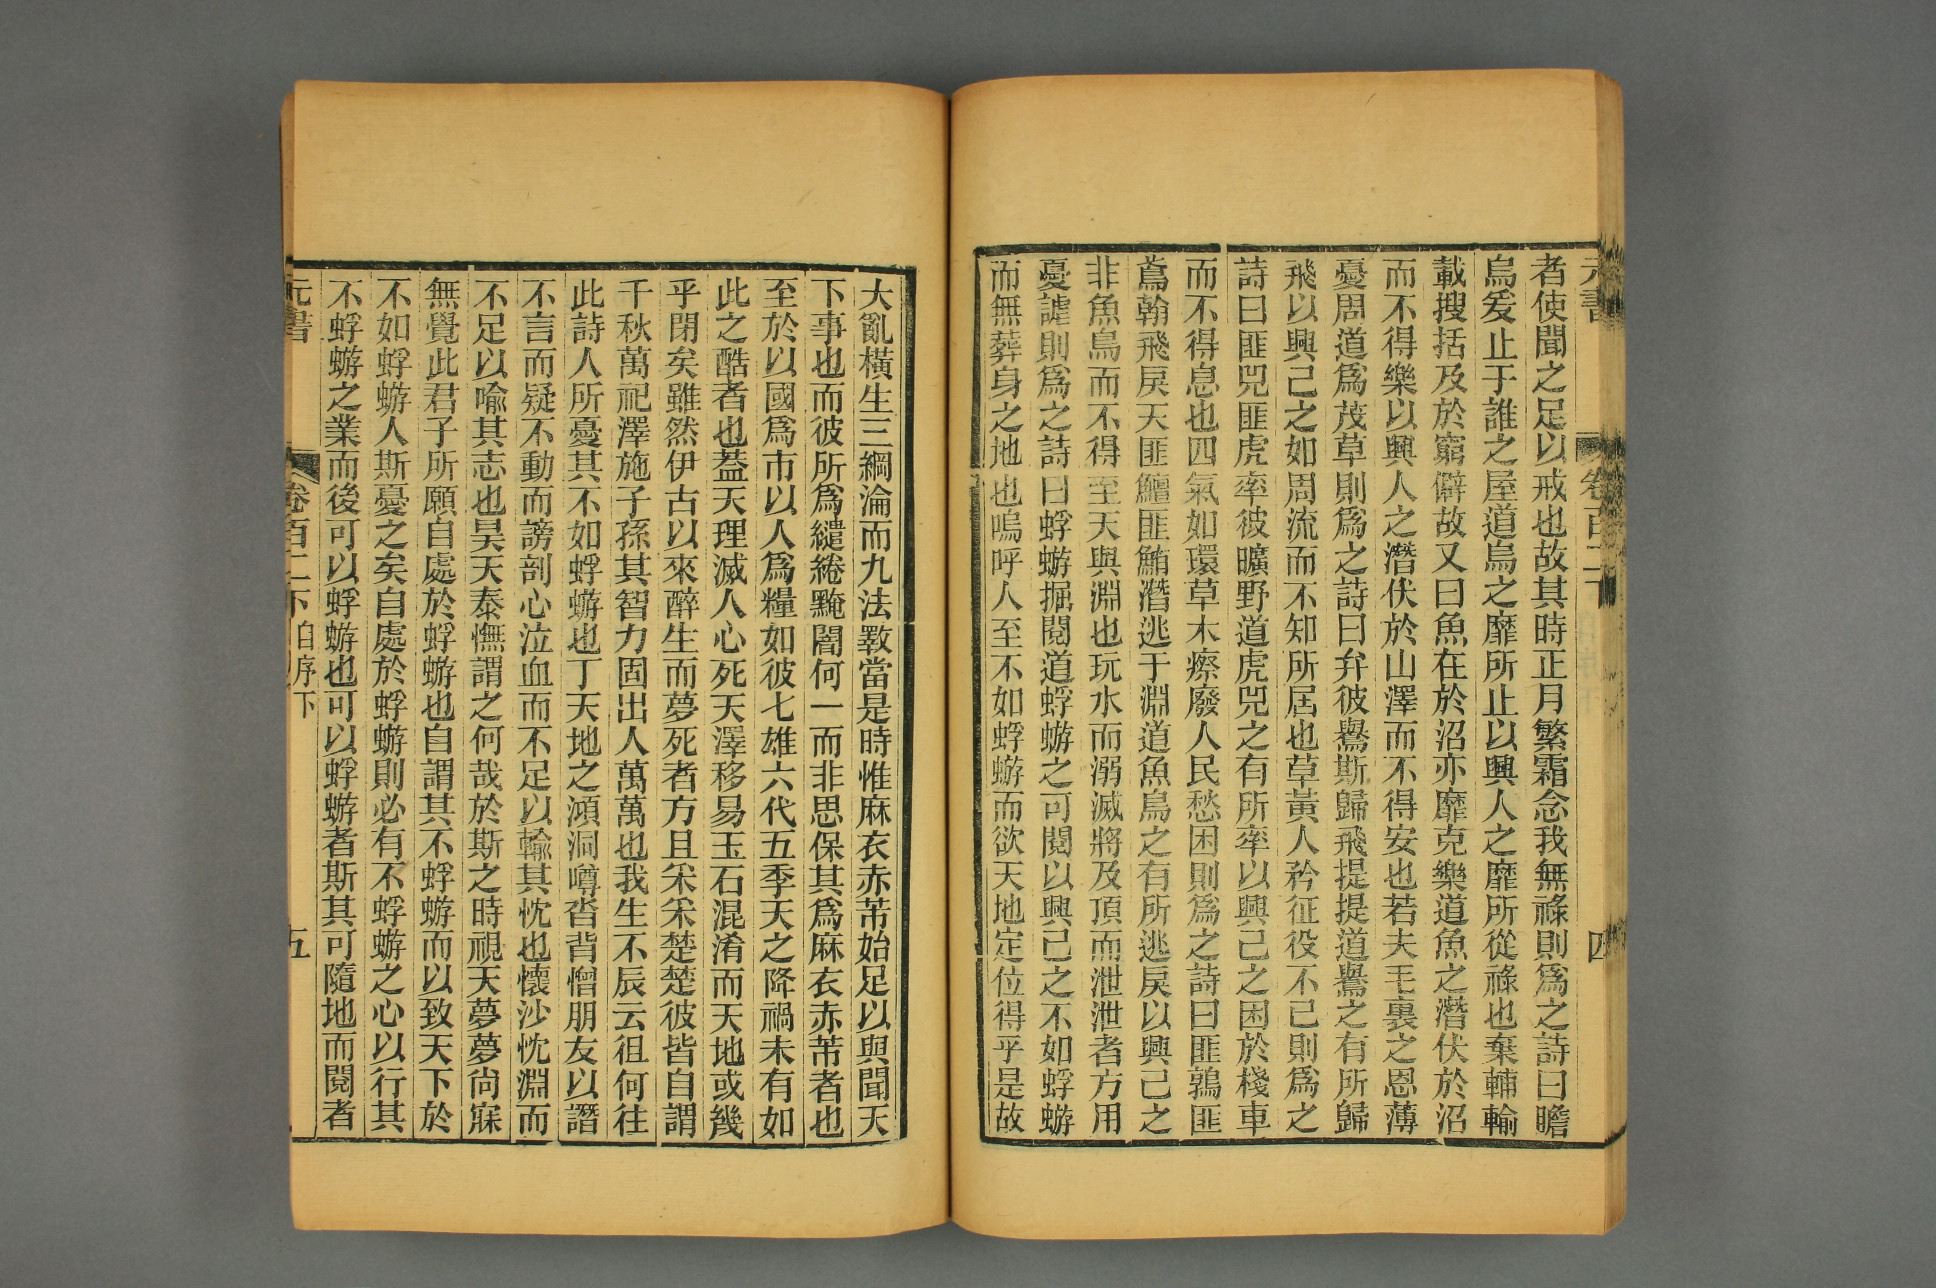 元書 卷百二下 四
者使聞之足以戒也故其時正月繁霜念我無祿則爲之詩曰瞻
烏爰止于誰之屋道烏之靡所止以興人之靡所從祿也棄輔輸
載搜括及於窮僻故又曰魚在於沼亦靡克樂道魚之潛伏於沼
而不得樂以興人之潛伏於山澤而不得安也若夫毛裏之恩薄
憂周道爲茂草則爲之詩曰弁彼鸒斯歸飛提提道鸒之有所歸
飛以興己之如周流而不知所居也草黃人矜征役不已則爲之
詩曰匪兕匪虎率彼曠野道虎兕之有所率以興己之困於棧車
而不得息也四氣如環草木瘵廢人民愁困則爲之詩曰匪鶉匪
鳶翰飛戾天匪鱣匪鮪潛逃于淵道魚鳥之有所逃戾以興己之
非魚鳥而不得至天與淵也玩水而溺滅將及頂而泄泄者方用
憂謔則爲之詩曰蜉蝣掘閱道蜉蝣之可閱以興己之不如蜉蝣
而無葬身之地也嗚呼人至不如蜉蝣而欲天地定位得乎是故
大亂橫生三綱淪而九法斁當是時惟麻衣赤芾始足以與聞天
下事也而彼所爲繾綣黤闇何一而非思保其爲麻衣赤芾者也
至於以國爲市以人爲糧如彼七雄六代五季天之降禍未有如
此之酷者也葢天理滅人心死天澤移易玉石混淆而天地或幾
乎閉矣雖然伊古以來醉生而夢死者方且采采楚楚彼皆自謂
千秋萬祀澤施子孫其智力固出人萬萬也我生不辰云徂何往
此詩人所憂其不如蜉蝣也丁天地之澒洞噂沓背憎朋友以譖
不言而疑不動而謗剖心泣血而不足以輸其忱也懷沙忱淵而
不足以喻其志也昊天泰憮謂之何哉於斯之時視天夢夢尙寐
無覺此君子所願自處於蜉蝣也自謂其不蜉蝣而以致天下於
不如蜉蝣人斯憂之矣自處於蜉蝣則必有不蜉蝣之心以行其
不蜉蝣之業而後可以蜉蝣也可以蜉蝣者斯其可隨地而閱者
元書 卷百二下 自序下 五